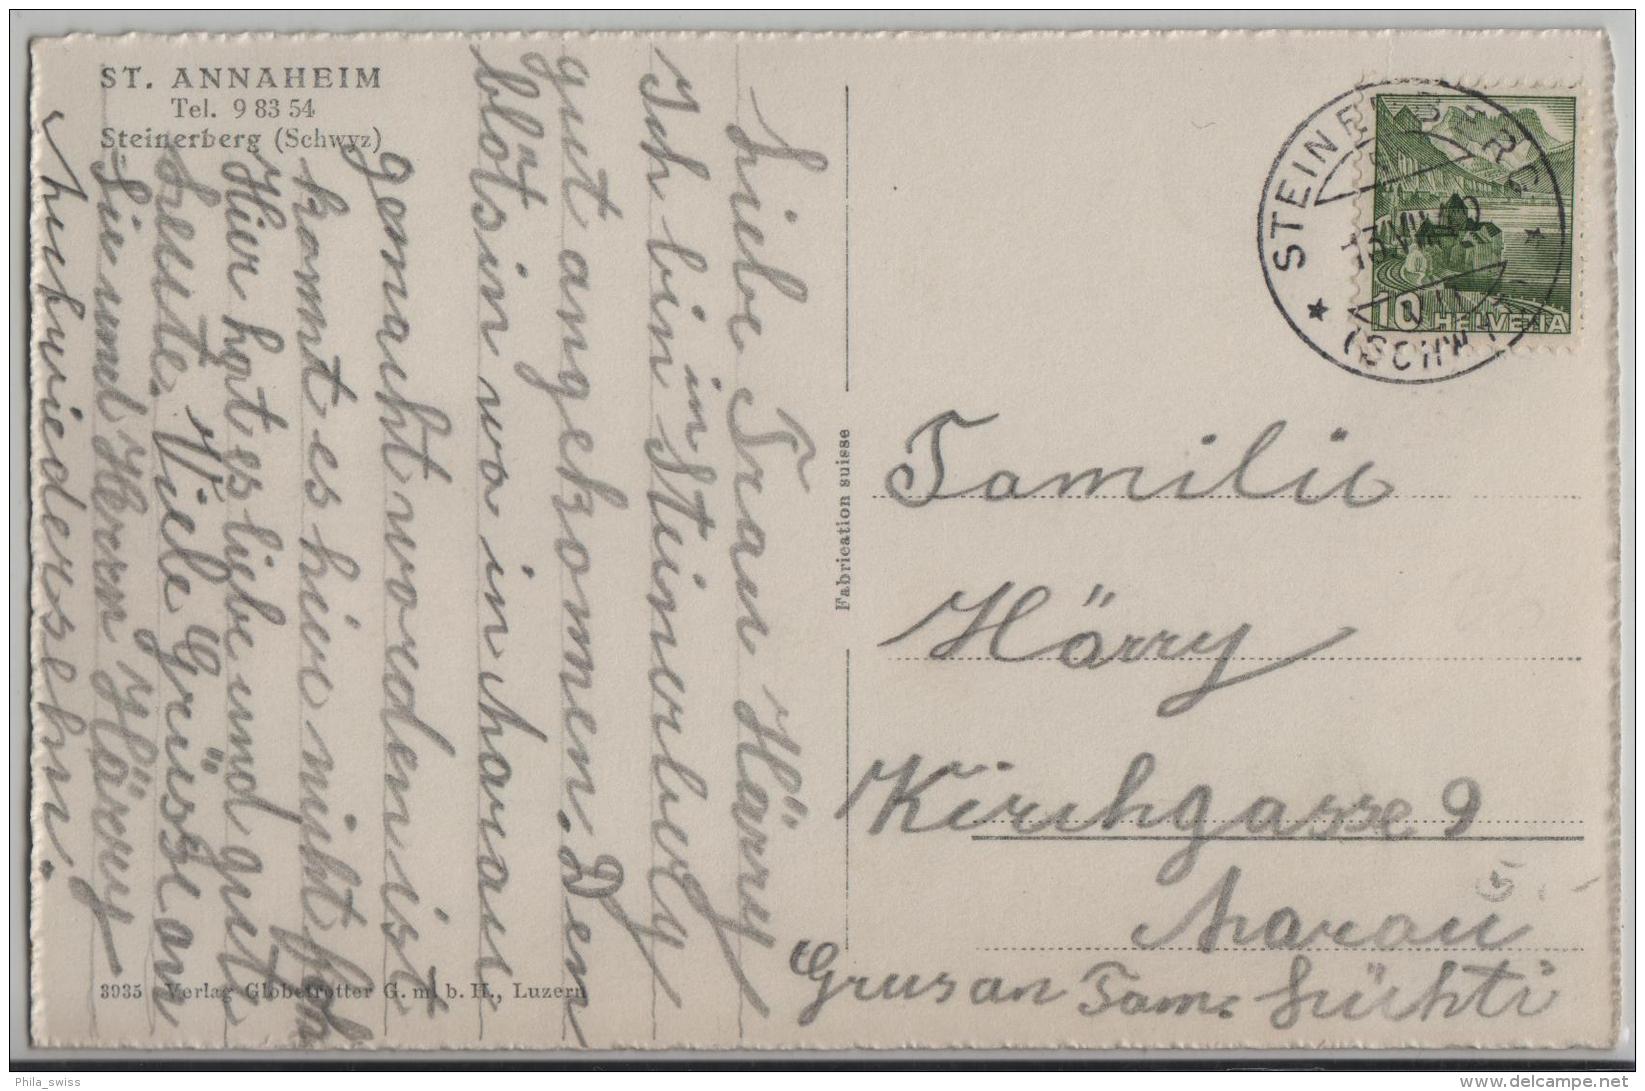 ST. ANNAHEIM
Tel. 9 83 54
Steinerberg (Schwyz)
Liebe Frau Härry
Ich bin in Steinerberg
gut angekommen. Den
blötsin wo in Aarau
gemacht worden ist
kommt es hier nicht
Hier hat es liebe und gute
Leute. Viele Grüsse an
Sie und Herrn Härry
Aufwiedersehn.
3935 Verlag Globetrotter G. m. b. H., Luzern
Fabrication suisse
STEINERBERG
13.VIII.
(SCHWYZ)
10 HELVETIA
Familie
Härry
Kirchgasse 9
Aarau
Grus an Fam: Lüchti
Phila_swiss
delcampe.net